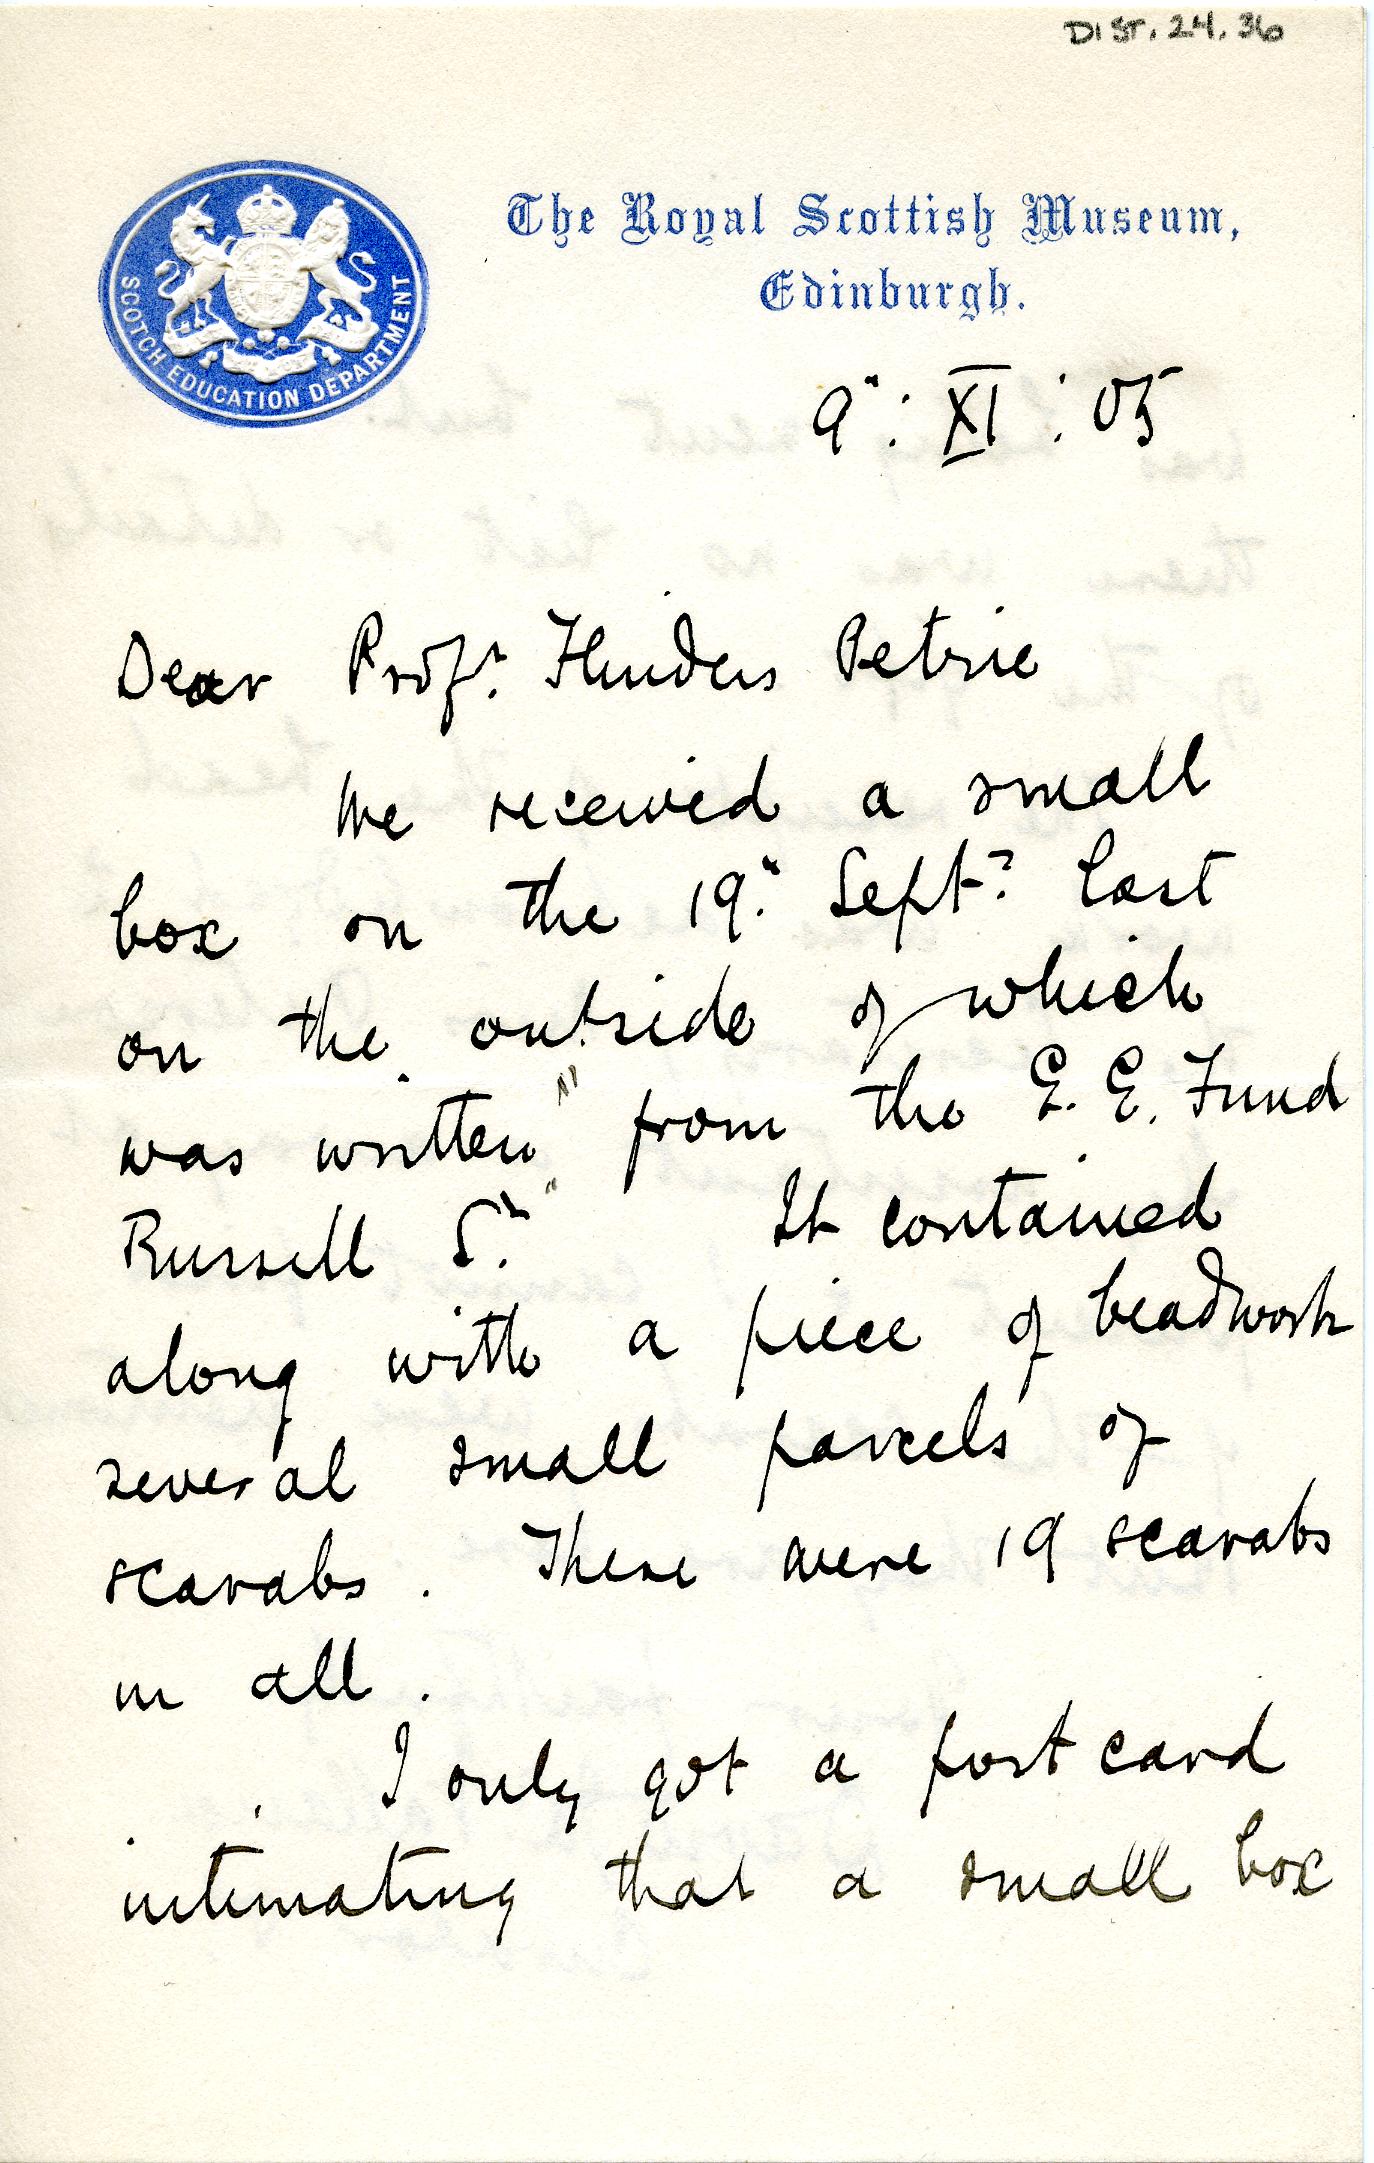 DIST. 24. 36
SCOTCH EDUCATION DEPARTMENT
The Royal Scottish Museum,
Edinburgh.
9" : XI : 05
Dear Prof.r Flinders Petrie
We received a small
box on the 19.th Sept.r last
on the outside of which
was written "from the E. E. Fund
Russell St." It contained
along with a piece of beadwork
several small parcels of
scarabs. There were 19 scarabs
in all.
I only got a post card
intimating that a small box